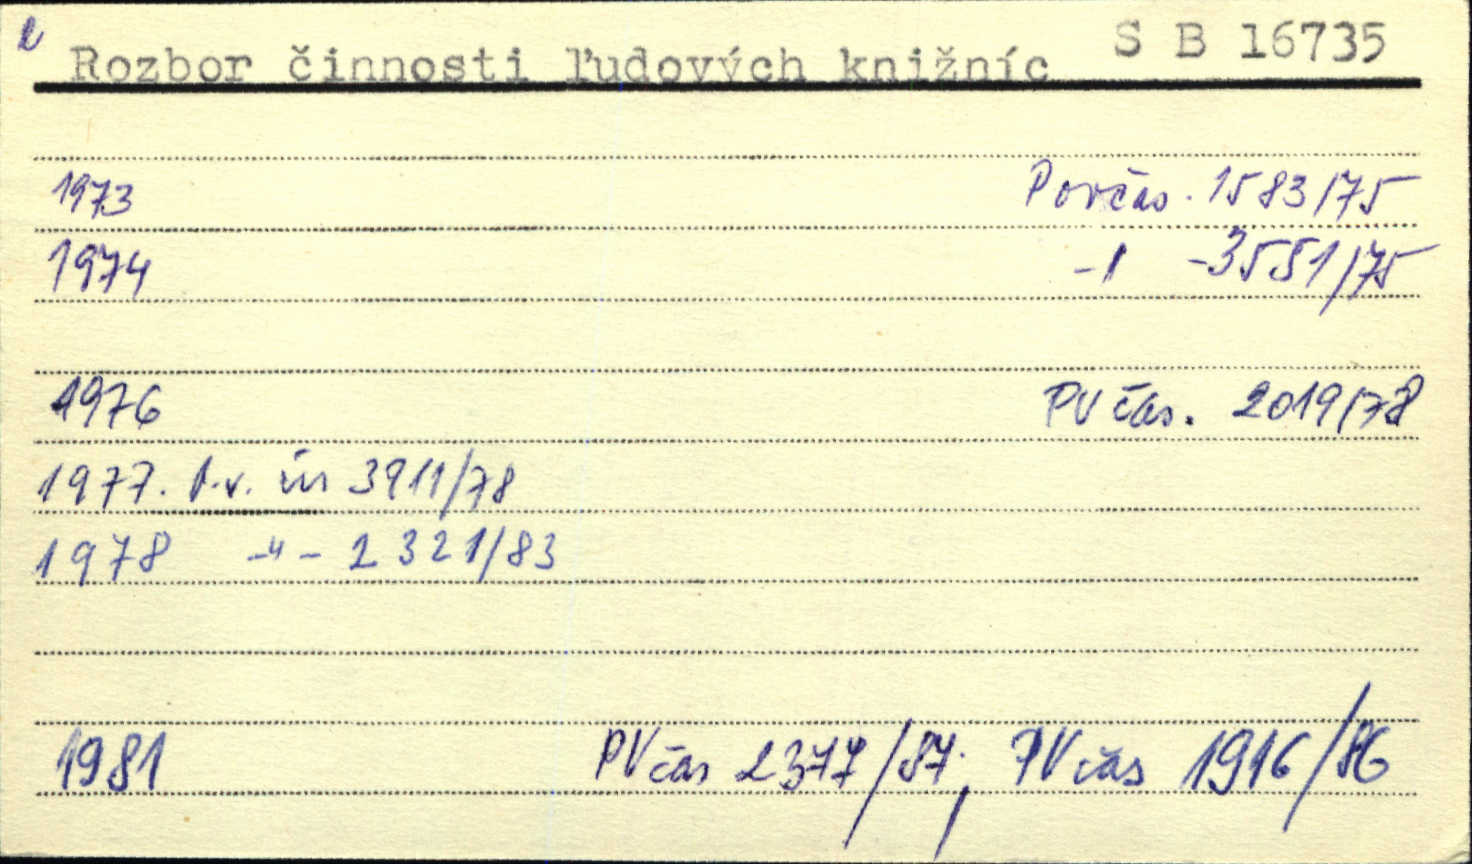 Rozbor činnosti ľudových knižníc S B 16735
1973 Porčás. 1583/75
1974 -1 -3551/75
1976 PV čás. 2019/78
1977. p.v. čás 3911/78
1978 -"- 2321/83
1981 PV čás 2377/87; PV čás 1916/86